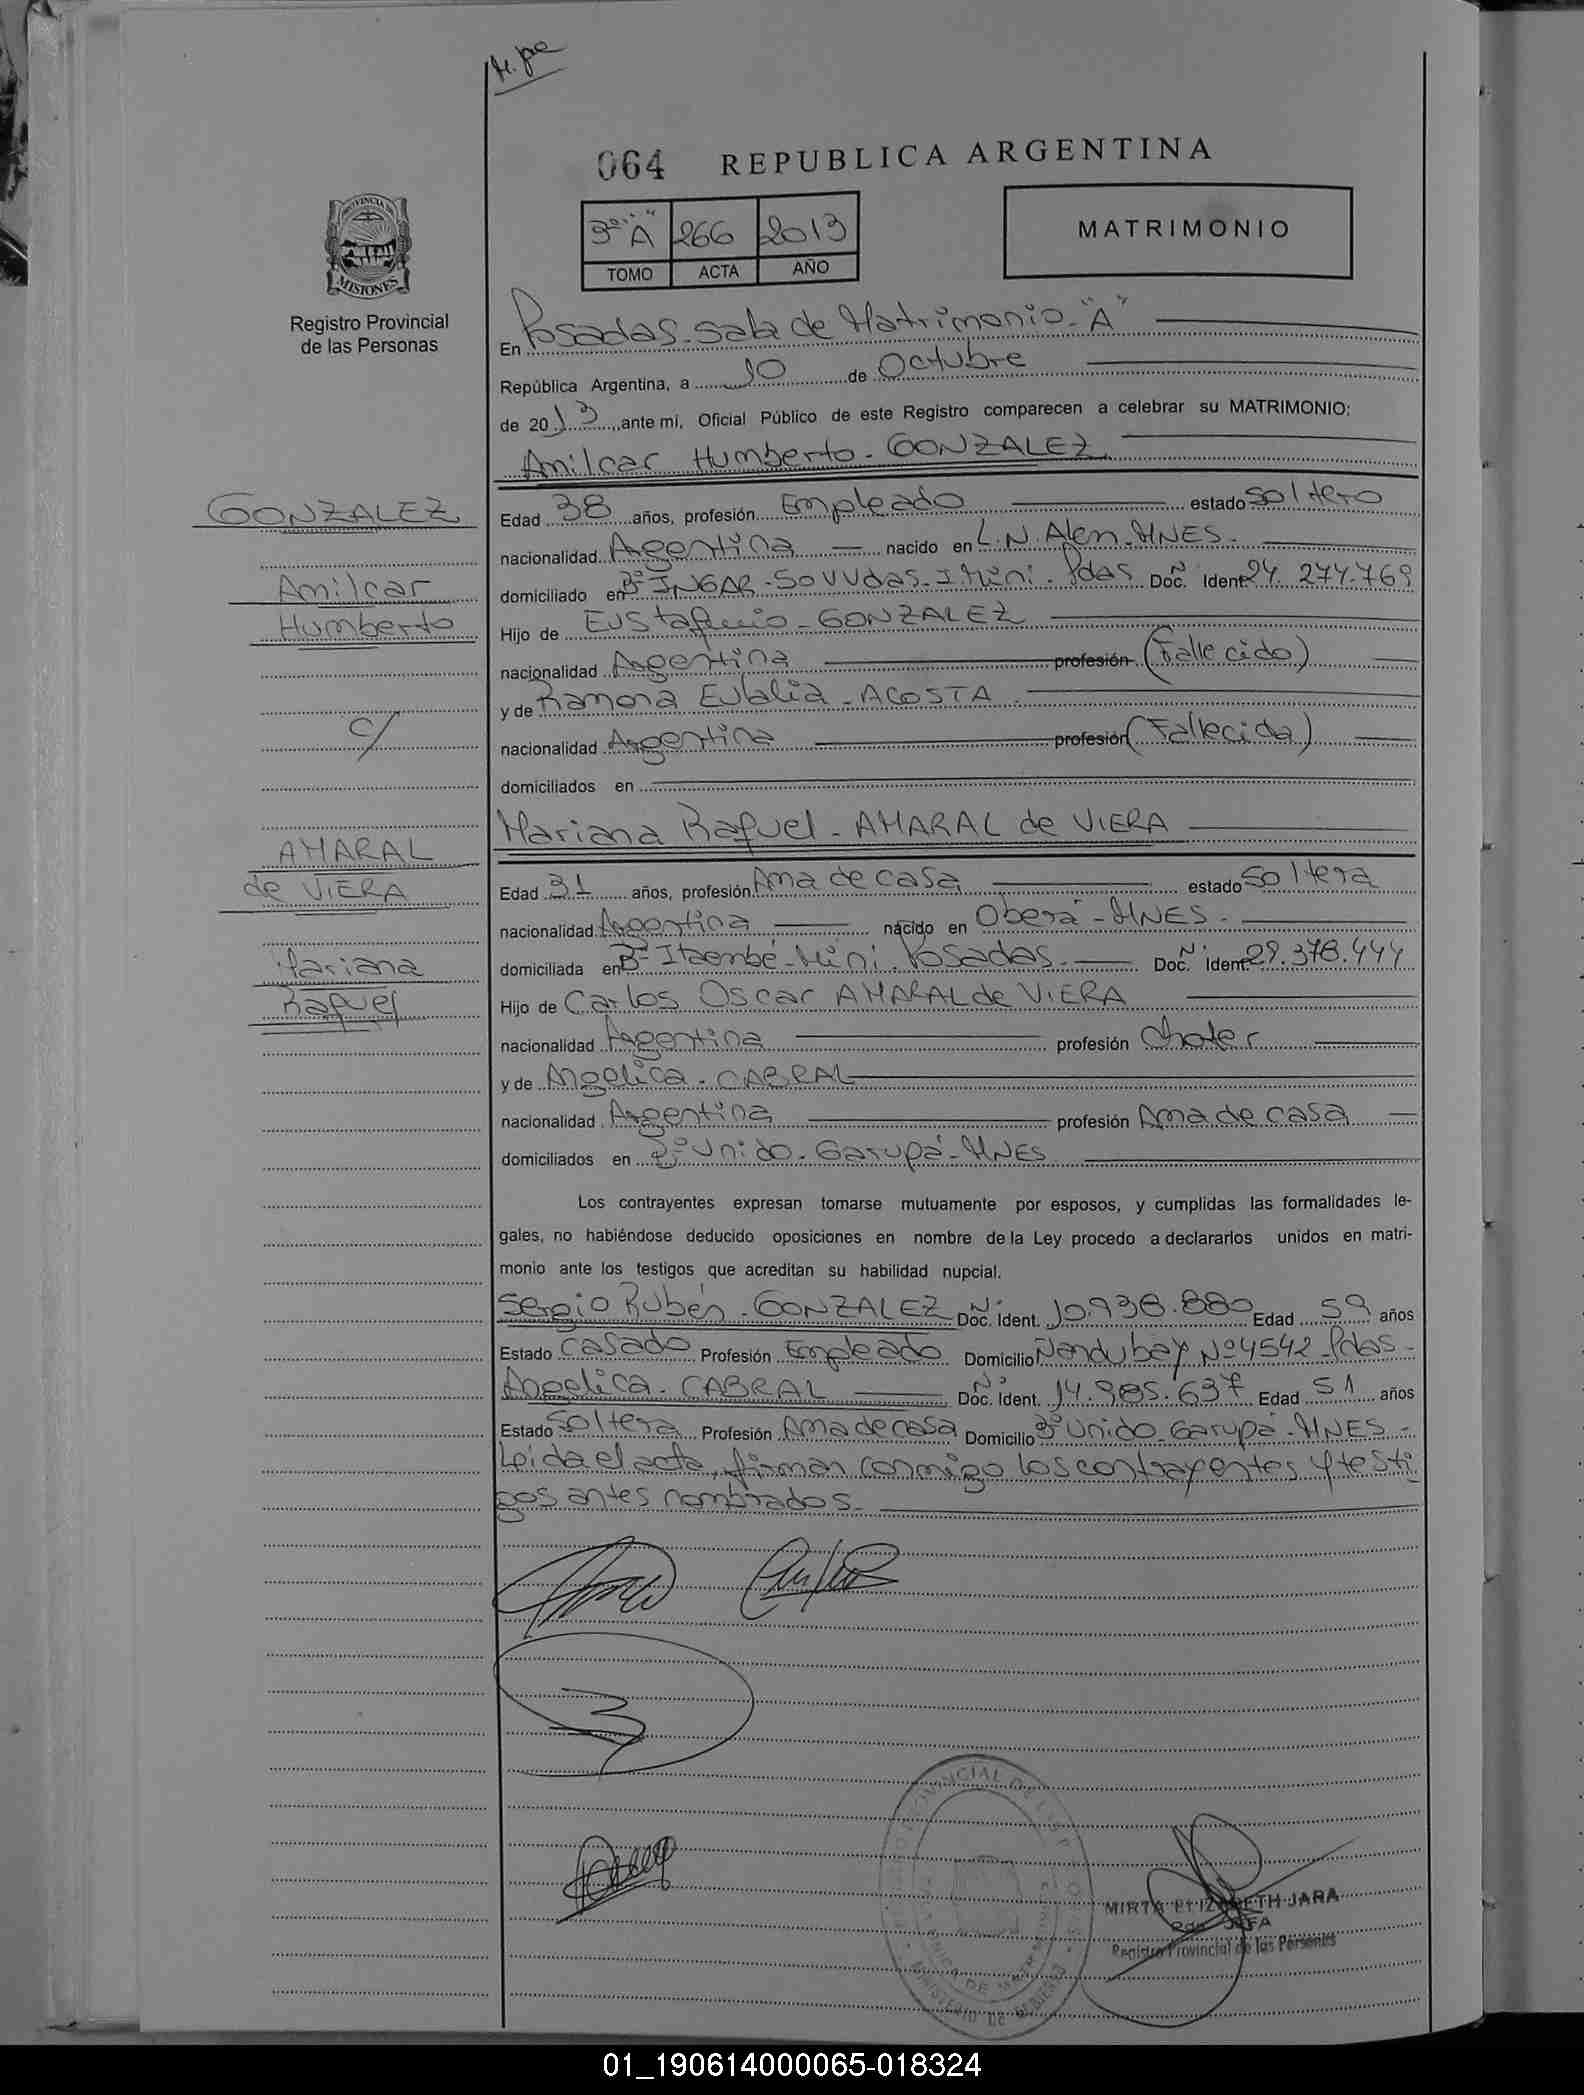 H. pre
064 REPUBLICA ARGENTINA
3º "A" 266 2013
TOMO ACTA AÑO
MATRIMONIO
PROVINCIA DE
MISIONES
Registro Provincial
de las Personas
En Posadas - Sala de Matrimonio - "A"
República Argentina, a 10 de Octubre
de 2013 ante mi, Oficial Público de este Registro comparecen a celebrar su MATRIMONIO:
Amilcar Humberto - GONZALEZ
GONZALEZ
Amilcar
Humberto
c/
AMARAL
de VIERA
Mariana
Raquel
Edad 38 años, profesión Empleado estado soltero
nacionalidad Argentina nacido en L.N. Alem - MNES -
domiciliado en Bº INGAR - 50 VVdas - I. Mini - Pdas Doc. Nº Ident 24.274.769
Hijo de Eustaquio - GONZALEZ
nacionalidad Argentina profesión (Fallecido)
y de Ramona Eulalia - ACOSTA
nacionalidad Argentina profesión (Fallecida)
domiciliados en
Mariana Raquel - AMARAL de VIERA
Edad 31 años, profesión Ama de casa estado soltera
nacionalidad Argentina nacido en Oberá - MNES -
domiciliada en Bº Itaembé - Mini - Posadas - Doc. Nº Ident. 29.378.444
Hijo de Carlos Oscar AMARAL de VIERA
nacionalidad Argentina profesión Chofer
y de Angelica - CABRAL
nacionalidad Argentina profesión Ama de casa
domiciliados en Bº Unido - Garupá - MNES
Los contrayentes expresan tomarse mutuamente por esposos, y cumplidas las formalidades le-
gales, no habiéndose deducido oposiciones en nombre de la Ley procedo a declararlos unidos en matri-
monio ante los testigos que acreditan su habilidad nupcial.
Sergio Rubén - GONZALEZ Doc. Nº Ident. 10.938.880 Edad 59 años
Estado Casado Profesión Empleado Domicilio Ñandubay Nº 4542 - Pdas -
Angelica - CABRAL Doc. Nº Ident. 14.985.637 Edad 51 años
Estado Soltera Profesión Ama de casa Domicilio Bº Unido - Garupá - MNES -
Leída el acta, firman conmigo los contrayentes y testi
gos antes nombrados.
MIRTA ELIZABETH JARA
JEFA
Registro Provincial de las Personas
01_190614000065-018324